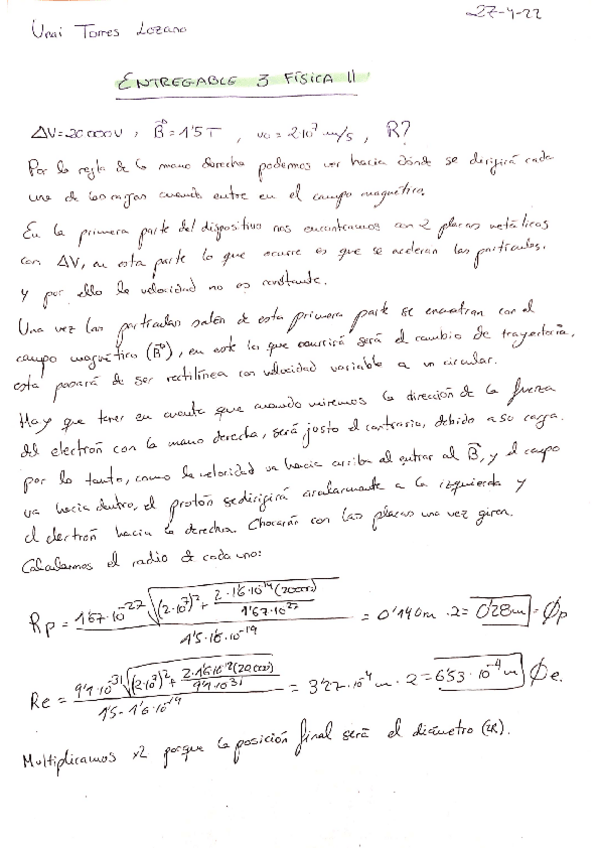 27-4-22
Unai Torres Lozano
ENTREGABLE 3 FÍSICA II
ΔV=20000V , B⃗=1'5T , v₀=2·10⁷ m/s , R?
Por la regla de la mano derecha podemos ver hacia dónde se dirigirá cada
una de las cargas cuando entre en el campo magnético.
En la primera parte del dispositivo nos encontramos con 2 placas metálicas
con ΔV, en esta parte lo que ocurre es que se aceleran las partículas.
y por ello la velocidad no es constante.
Una vez las partículas salen de esta primera parte se encuentran con el
campo magnético (B⃗), en este lo que ocurrirá será el cambio de trayectoria,
esta pasará de ser rectilínea con velocidad variable a un circular.
Hay que tener en cuenta que cuando miremos la dirección de la fuerza
del electrón con la mano derecha, será justo el contrario, debido a su carga.
por lo tanto, como la velocidad va hacia arriba al entrar al B⃗, y el campo
va hacia dentro, el protón se dirigirá circularmente a la izquierda y
el electrón hacia la derecha. Chocarán con las placas una vez giren.
Calculamos el radio de cada uno:
Rp = 1'67·10⁻²⁷ √((2·10⁷)² + 2·1'6·10⁻¹⁹(20000) / 1'67·10⁻²⁷) / 1'5·1'6·10⁻¹⁹ = 0'140m · 2 = 0'28m = Øp
Re = 9'1·10⁻³¹ √((2·10⁷)² + 2·1'6·10⁻¹⁹(20000) / 9'1·10⁻³¹) / 1'5·1'6·10⁻¹⁹ = 3'27·10⁻⁴m · 2 = 6'53·10⁻⁴m Øe.
Multiplicamos x2 porque la posición final será el diámetro (2R).